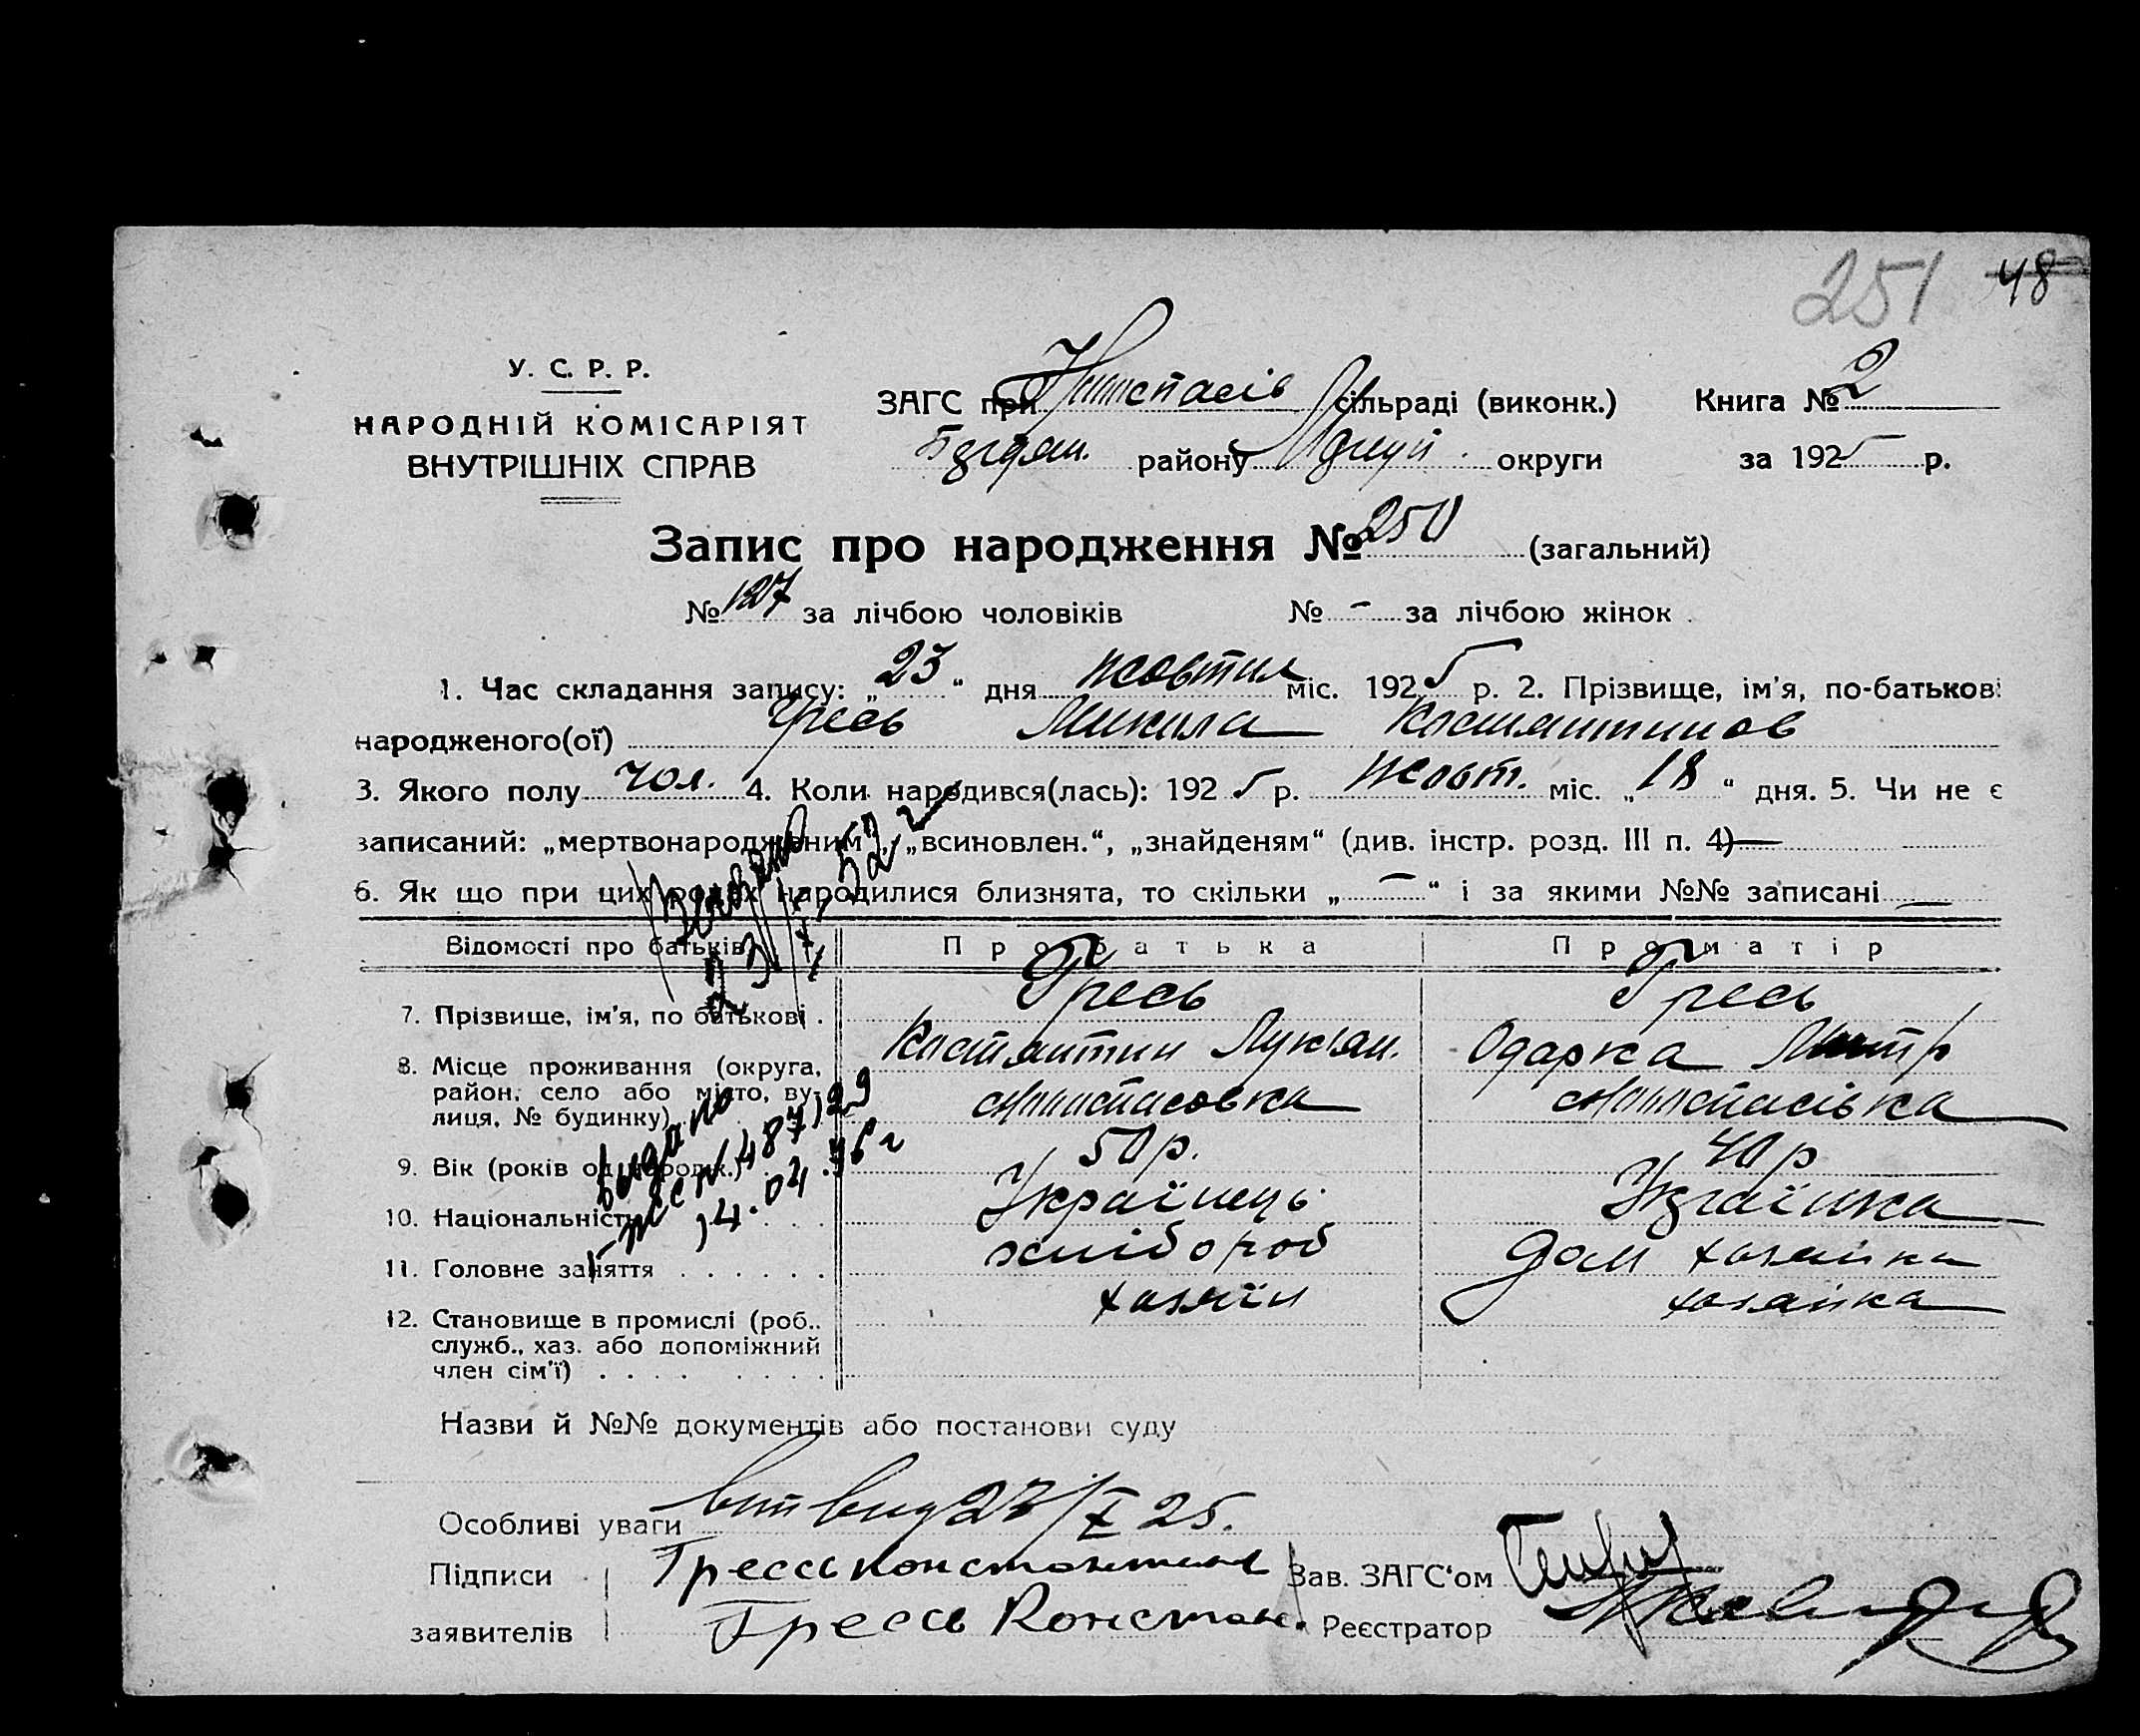 251 48
У. С. Р. Р.
НАРОДНІЙ КОМІСАРІЯТ
ВНУТРІШНІХ СПРАВ
ЗАГС при сільраді (виконк.)
району округи
Книга № 2
за 1925 р.
Запис про народження № 250 (загальний)
№ 127 за лічбою чоловіків № – за лічбою жінок
1. Час складання запису: „23“ дня жовтня міс. 1925 р. 2. Прізвище, ім’я, по-батькові
народженого(ої) Гресь Микола Костянтинов
3. Якого полу чол. 4. Коли народився(лась): 1925 р. Жовт. міс. „18“ дня. 5. Чи не є
записаний: „мертвонародженим“, „всиновлен.“, „знайденям“ (див. інстр. розд. III п. 4) —
6. Як що при цих родах народилися близнята, то скільки „—“ і за якими №№ записані —
Відомості про батьків Про батька Про матір
7. Прізвище, ім’я, по батькові . Гресь Гресь
Костянтин Лукян. Одарка Митр
8. Місце проживання (округа,
район, село або місто, ву-
лиця, № будинку) Анастасовка Анастасівка
9. Вік (років од народж.) 50 р. 40 р
10. Національність . . . Українець Українка
11. Головне заняття . . . . . . хлібороб Дом хозяйка
12. Становище в промислі (роб.. хозяїн хозяйка
служб., хаз. або допоміжний
член сім’ї) . . . . . . . .
видано
14.04.
Назви й №№ документів або постанови суду
Особливі уваги вит вид 23/X 25.
Підписи Гресь Константин Зав. ЗАГС‘ом
заявителів Гресь Констан. Реєстратор